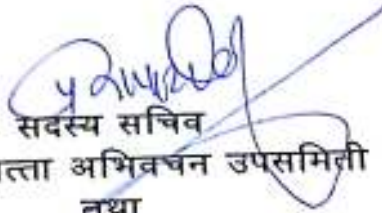 सदस्य सचिव
अभिवचन उपसमिती
तथा